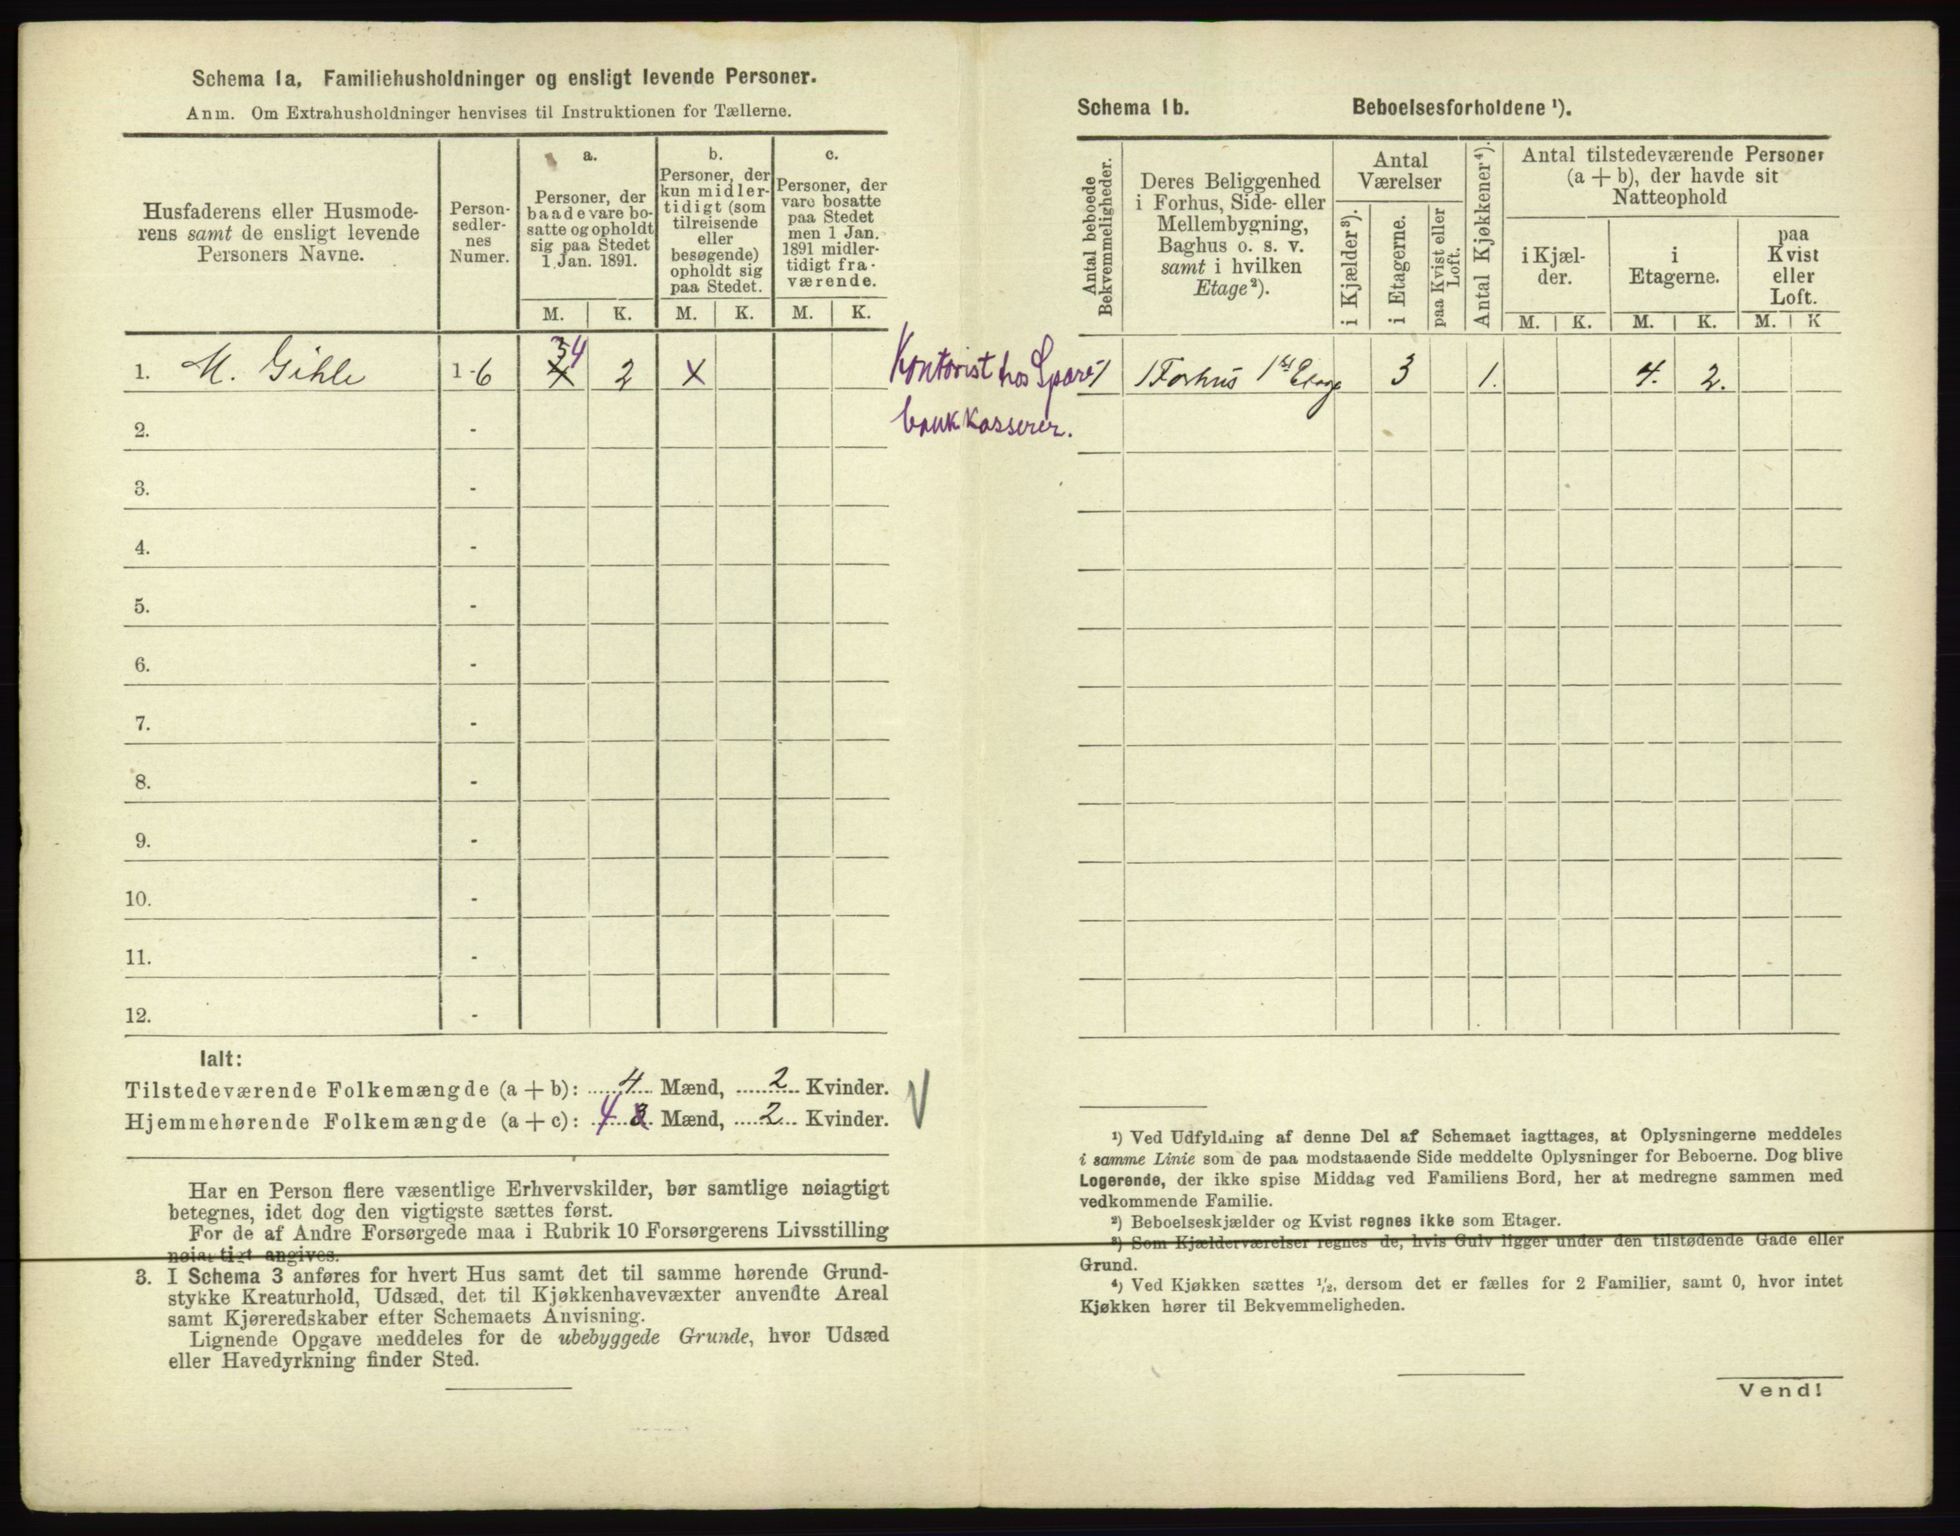 Schema 1a, Familiehusholdninger og ensligt levende Personer.
Anm. Om Extrahusholdninger henvises til Instruktionen for Tællerne.
Husfaderens eller Husmode-
rens samt de ensligt levende
Personers Navne.
Person-
sedler-
nes
Numer.
a.
Personer, der
baade vare bo-
satte og opholdt
sig paa Stedet
1 Jan. 1891.
M. K.
b.
Personer, der
kun midler-
tidigt (som
tilreisende
eller
besøgende)
opholdt sig
paa Stedet.
M. K.
c.
Personer, der
vare bosatte
paa Stedet
men 1 Jan.
1891 midler-
tidigt fra-
værende.
M. K.
1. M. Gihle 1-6 3 4 2 x
Kontorist hos Spare-
bankkasserer.
2. -
3. -
4. -
5. -
6. -
7. -
8. -
9. -
10. -
11. -
12. -
Ialt:
Tilstedeværende Folkemængde (a + b): 4 Mænd, 2 Kvinder.
Hjemmehørende Folkemængde (a + c): 4 3 Mænd, 2 Kvinder.
Har en Person flere væsentlige Erhvervskilder, bør samtlige nøiagtigt
betegnes, idet dog den vigtigste sættes først.
For de af Andre Forsørgede maa i Rubrik 10 Forsørgerens Livsstilling
nøiagtigt angives.
3. I Schema 3 anføres for hvert Hus samt det til samme hørende Grund-
stykke Kreaturhold, Udsæd, det til Kjøkkenhavevæxter anvendte Areal
samt Kjøreredskaber efter Schemaets Anvisning.
Lignende Opgave meddeles for de ubebyggede Grunde, hvor Udsæd
eller Havedyrkning finder Sted.
Schema 1b. Beboelsesforholdene ¹).
Antal beboede
Bekvemmeligheder.
Deres Beliggenhed
i Forhus, Side- eller
Mellembygning,
Baghus o. s. v.
samt i hvilken
Etage²).
Antal
Værelser
i Kjælder³).
i Etagerne.
paa Kvist eller
Loft.
Antal Kjøkkener⁴).
Antal tilstedeværende Personer
(a + b), der havde sit
Natteophold
i Kjæl-
der.
M. K.
i
Etagerne.
M. K.
paa
Kvist
eller
Loft.
M. K
1 1 Forhus 1ste Etage 3 1. 4. 2.
¹) Ved Udfyldning af denne Del af Schemaet iagttages, at Oplysningerne meddeles
i samme Linie som de paa modstaaende Side meddelte Oplysninger for Beboerne. Dog blive
Logerende, der ikke spise Middag ved Familiens Bord, her at medregne sammen med
vedkommende Familie.
²) Beboelseskjælder og Kvist regnes ikke som Etager.
³) Som Kjælderværelser regnes de, hvis Gulv ligger under den tilstødende Gade eller
Grund.
⁴) Ved Kjøkken sættes ¹/₂, dersom det er fælles for 2 Familier, samt 0, hvor intet
Kjøkken hører til Bekvemmeligheden.
Vend!